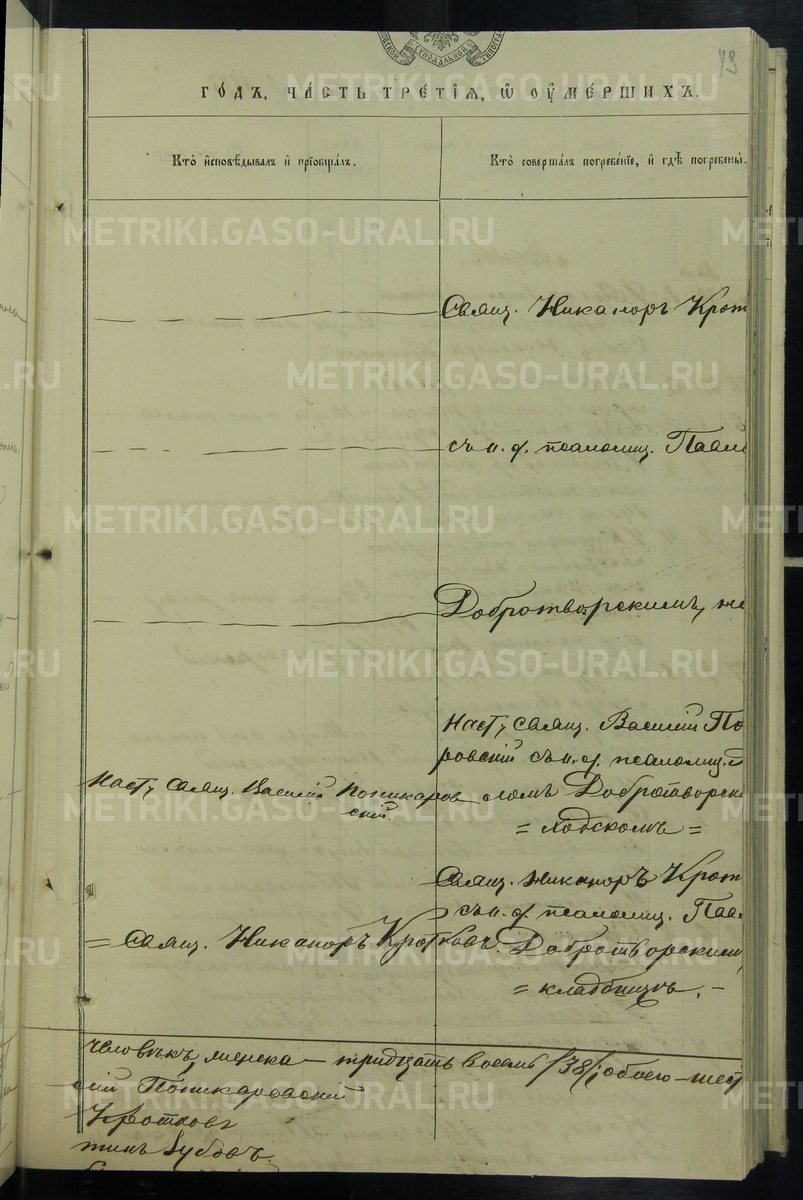 СѴНОДАЛЬНОЙ
43
ГО́ДЪ, ЧА́СТЬ ТРЕ́ТІѦ, Ѡ҆ ОУ҆МЕ́РШИХЪ.
Кто̀ и҆сповѣ́дывалъ и҆ прїѡбща́лъ.
Кто̀ соверша́лъ погребе́нїе, и҆ гдѣ̀ погребены̀.
Свящ. Никаноръ Крот
съ и. д. псаломщ. Павл
Добротворскимъ, на
Наст, свящ. Василій По
ровскій съ и. д. псаломщ.
Наст, свящ. Василій Поликаров
скій.
ломъ Добротворск
= ходскомъ =
Свящ. Никаноръ Крот
съ и. д. псаломщ. Пав
= Свящ. Никаноръ Кротковъ.
Добротворским
= кладбищѣ. –
человѣкъ, женска – тридцать восемь /38/, обоего – шест
сій Поликаровскій
Кротковъ
тинъ Зубовъ.
METRIKI.GASO-URAL.RU